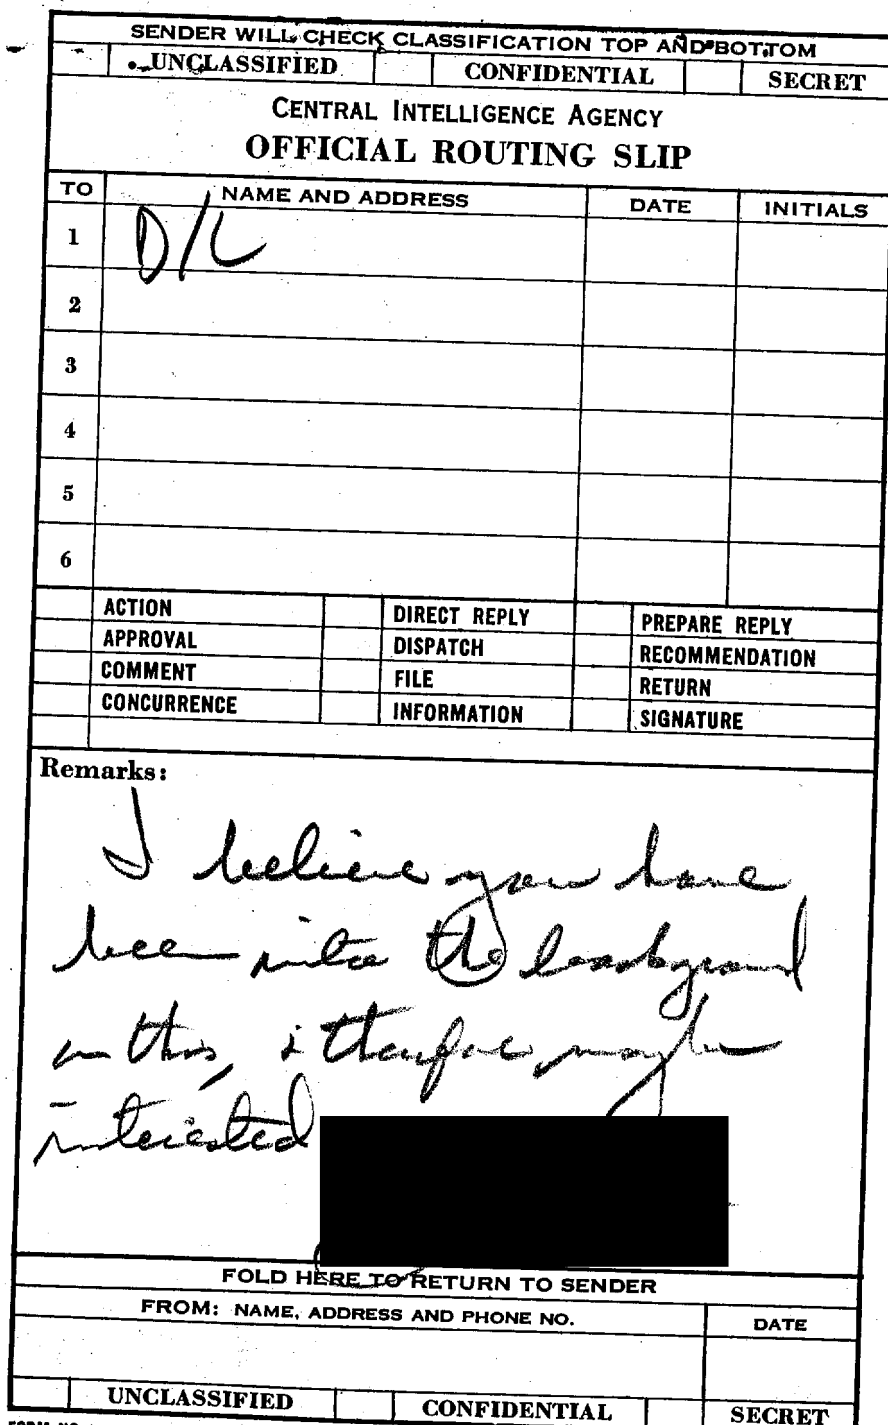 SENDER WILL CHECK CLASSIFICATION TOP AND BOTTOM
UNCLASSIFIED CONFIDENTIAL SECRET
CENTRAL INTELLIGENCE AGENCY
OFFICIAL ROUTING SLIP
TO NAME AND ADDRESS DATE INITIALS
1 D/L
2
3
4
5
6
ACTION DIRECT REPLY PREPARE REPLY
APPROVAL DISPATCH RECOMMENDATION
COMMENT FILE RETURN
CONCURRENCE INFORMATION SIGNATURE
Remarks:
I believe you have
been into the background
on this, & therefore may be
interested
FOLD HERE TO RETURN TO SENDER
FROM: NAME, ADDRESS AND PHONE NO. DATE
UNCLASSIFIED CONFIDENTIAL SECRET